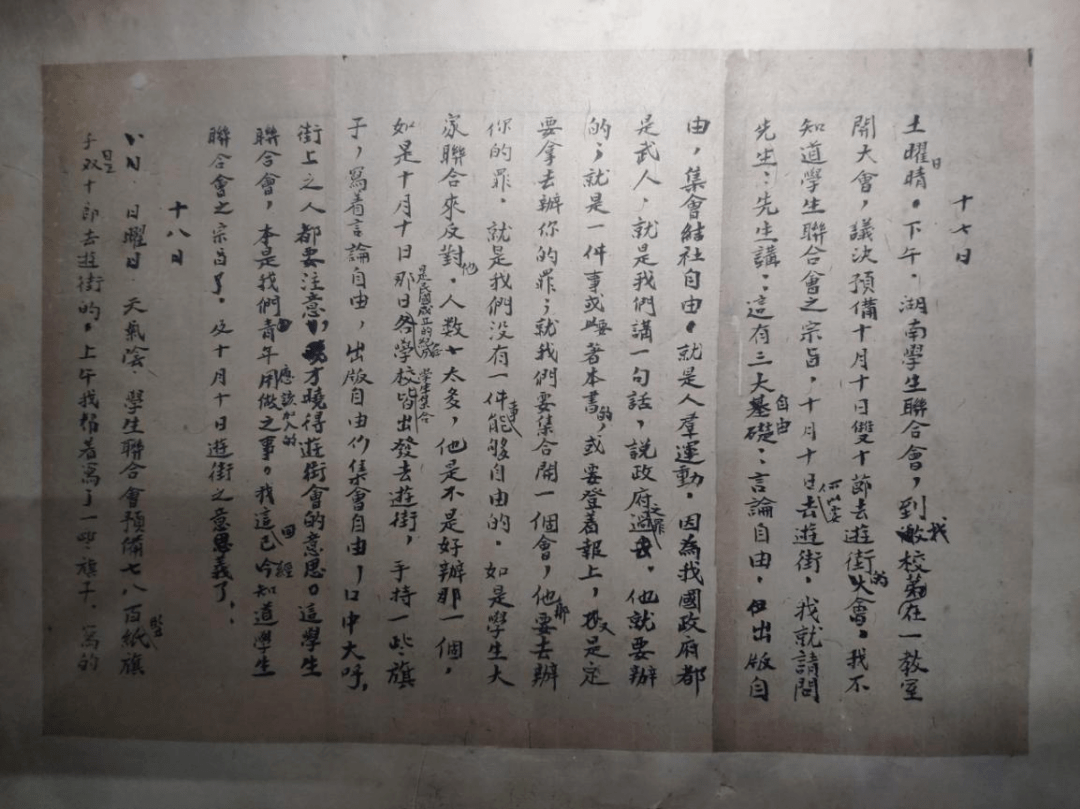 十七日
土曜日晴。下午．湖南學生聯合會，到我校在一教室
開大會，議決預備十月十日雙十節去遊街的大會。我不
知道學生聯合會之宗旨，十月十日所以要去遊街．我就請問
先生：先生講：這有三大自由基礎：言論自由．出版自
由，集會結社自由。就是人羣運動．因為我國政府都
是武人、就是我們講一句話，説政府之罪過．他就要辦
的；就是一件事或著本書的，或要登着報上，是定
要拿去辦你的罪；就我們要集合開一個會，他都要去辦
你的罪．就是我們没有一件事能够自由的．如是學生大
家聯合來反對他．人数太多，他是不是好辦那一個．
如是十月十日是民國成立的那日各學校學生集合皆出發去遊街，手持一些旗
子，寫着言論自由，出版自由集會自由，口中大呼．
街上之人都要注意，才曉得遊街會的意思。這學生
聯合會，本是我們青年應該做之事。我這回已經今知道學生
聯合會之宗旨了．及十月十日遊街之意思義了．
十八日
八日．日曜日．天氣陰．學生聯合會預備七八百紙旗
子是双十節去遊街的．上午我帮着寫了一些旗子．寫的